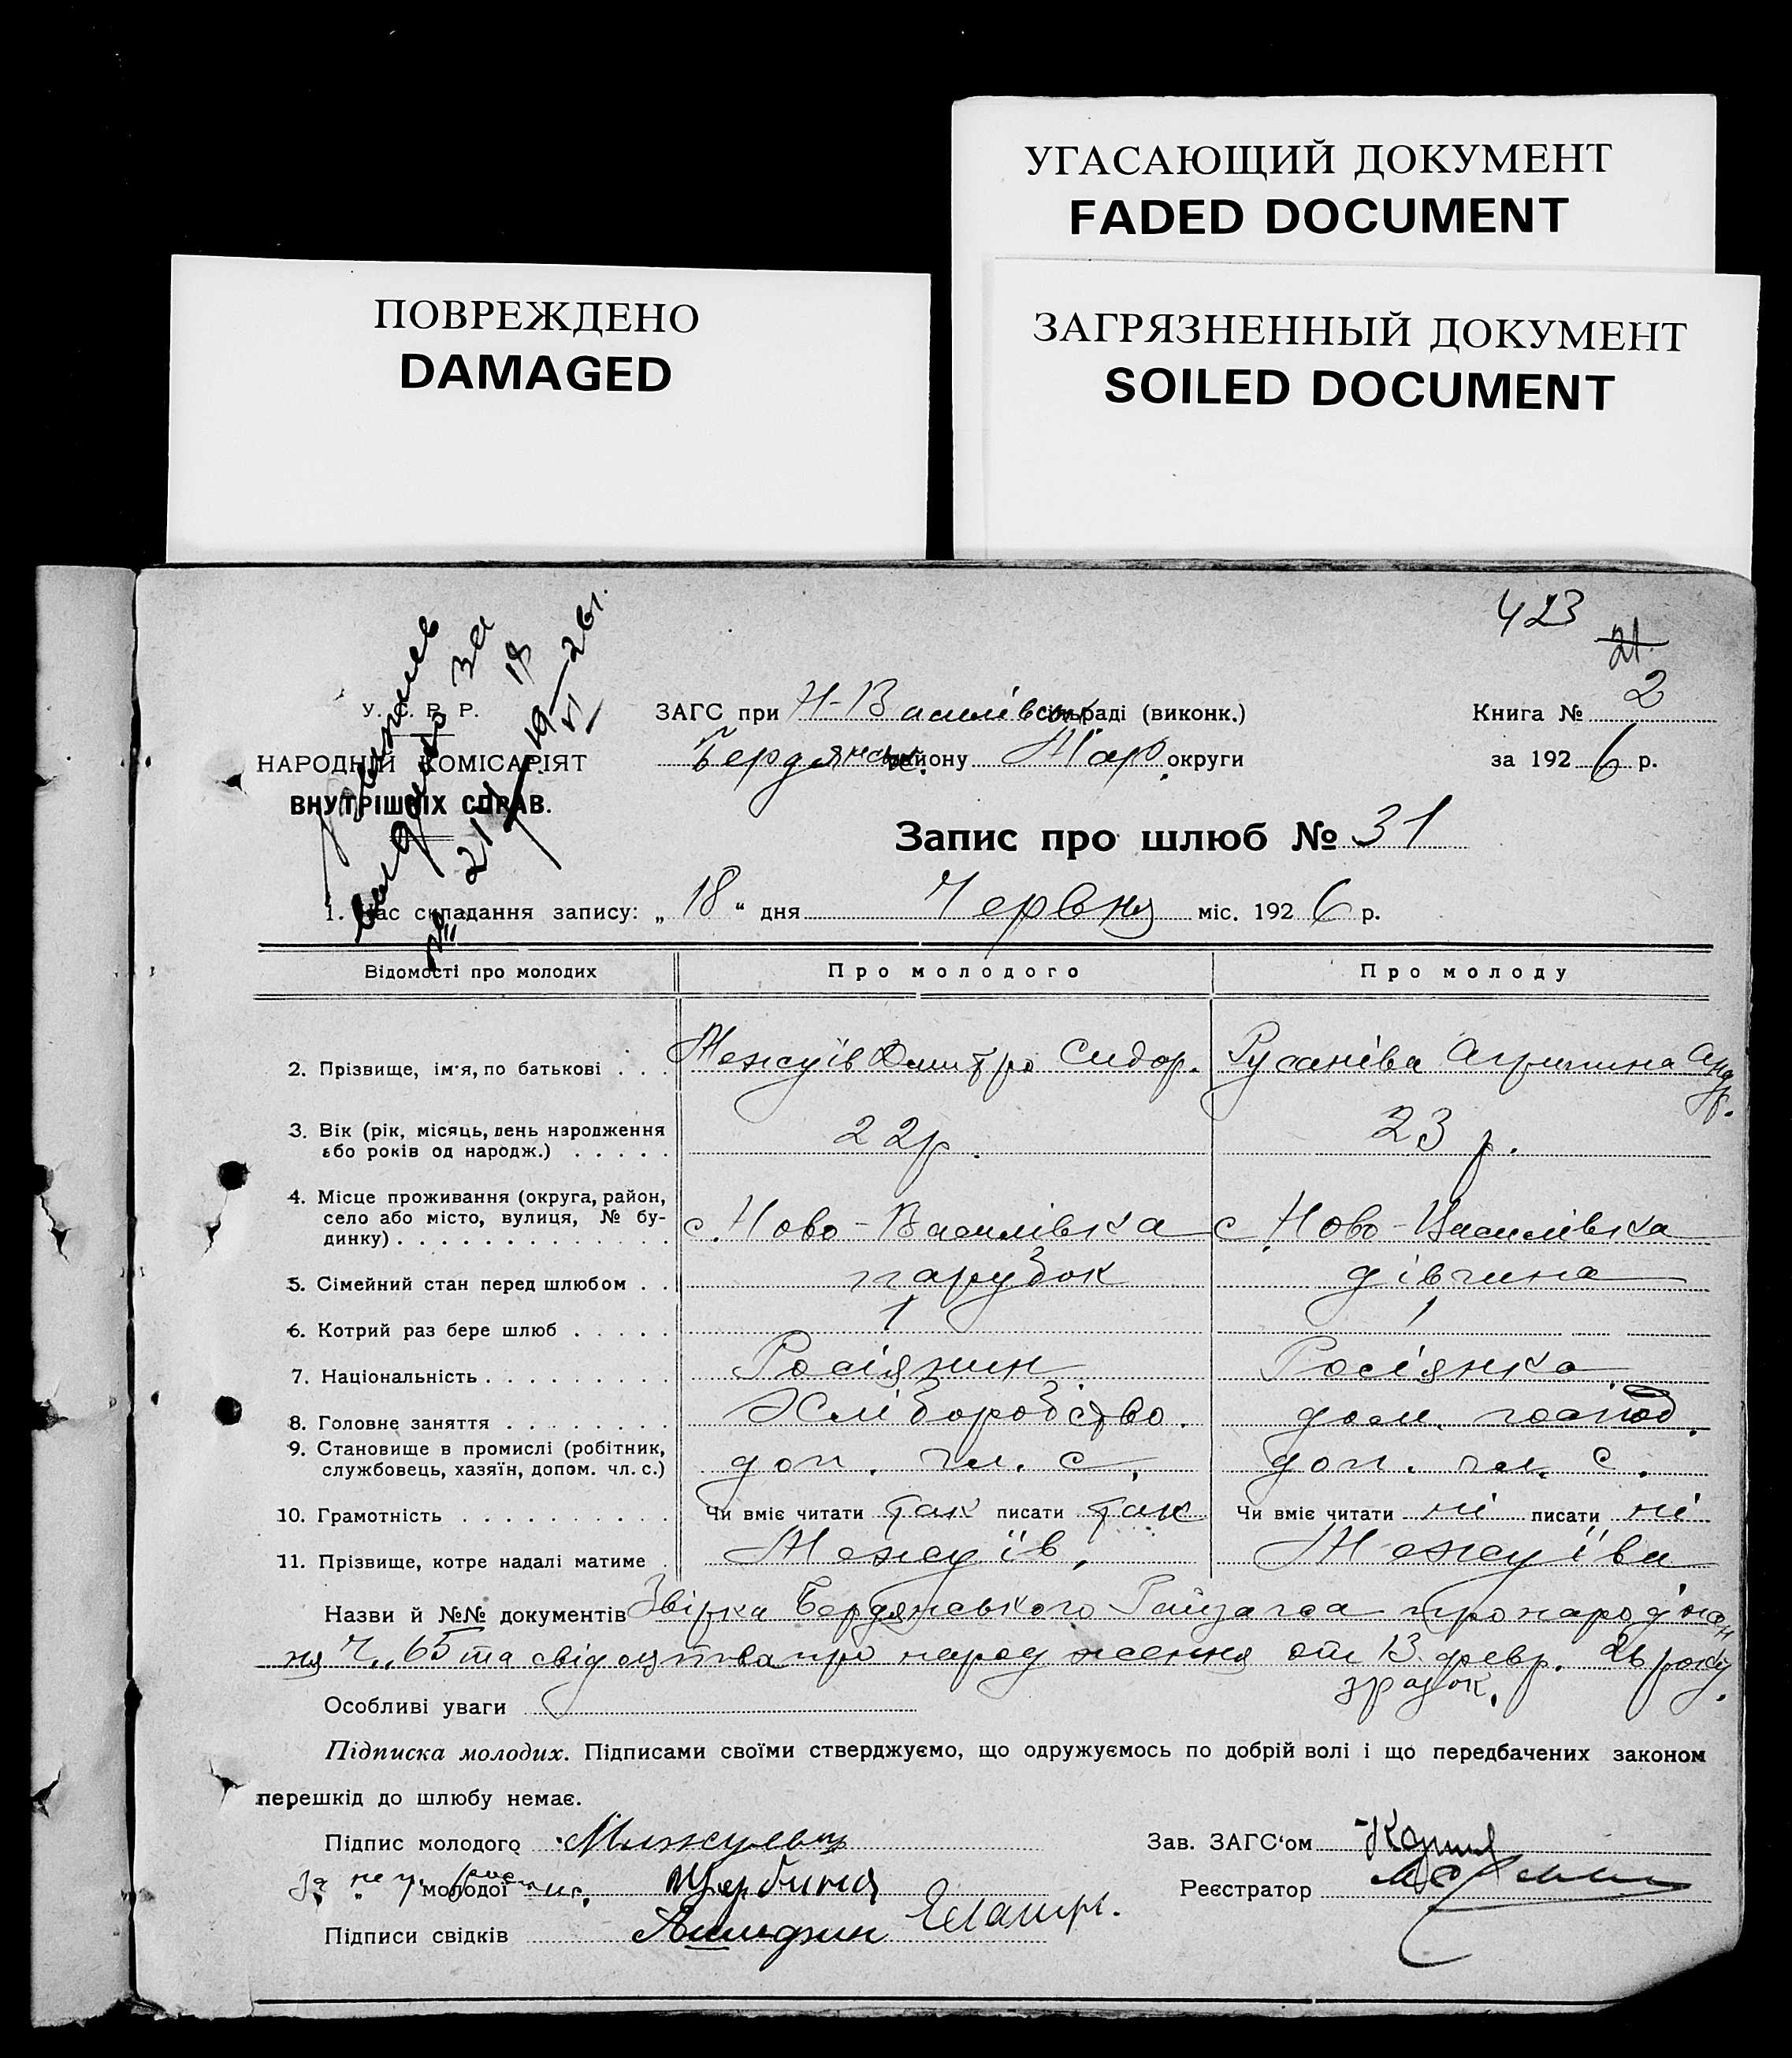 УГАСАЮЩИЙ ДОКУМЕНТ
FADED DOCUMENT
ПОВРЕЖДЕНО
DAMAGED
ЗАГРЯЗНЕННЫЙ ДОКУМЕНТ
SOILED DOCUMENT
423
21.
2
У. С. Р. Р.
НАРОДНІЙ КОМІСАРІЯТ
ВНУТРІШНІХ СПРАВ.
за 18
№ 21
ЗАГС при Н-Василівськ сільраді (виконк.)
Бердянськ. району Мар. округи
Книга №
за 1926 р.
Запис про шлюб № 31
1. Час складання запису: „ 18 “ дня Червня міс. 1926 р.
Відомості про молодих Про молодого Про молоду
2. Прізвище, ім'я, по батькові . . . Межуїв Дмитро Сидор. Русанівa Агрипина Андр.
3. Вік (рік, місяць, день народження або років од народж.) . . . . . 22 р. 23 р.
4. Місце проживання (округа, район, село або місто, вулиця, № будинку) . . . с. Ново-Василівка с. Ново-Василівка
5. Сімейний стан перед шлюбом . . парубок дівчина
6. Котрий раз бере шлюб . . . . . 1 1
7. Національність . . . . . . . . . Росіянин Росіянка
8. Головне заняття . . . . . . . . Хліборобство. дом. господ.
9. Становище в промислі (робітник, службовець, хазяїн, допом. чл. с.) доп. чл. с. доп. чл. с.
10. Грамотність . . . . . . . . . . Чи вміє читати так писати так Чи вміє читати ні писати ні
11. Прізвище, котре надалі матиме . Межуїв, Межуїва
Назви й №№ документів Звірка Бердянського Райзагса про народжен
ня Ч. 65 та свідоцтва про народження от 13 февр. 26 року.
Особливі уваги
Підписка молодих. Підписами своїми стверджуємо, що одружуємось по добрій волі і що передбачених законом
перешкід до шлюбу немає.
Підпис молодого
Зав. ЗАГС'ом
„ „ молодої Щербина
Реєстратор
Підписи свідків